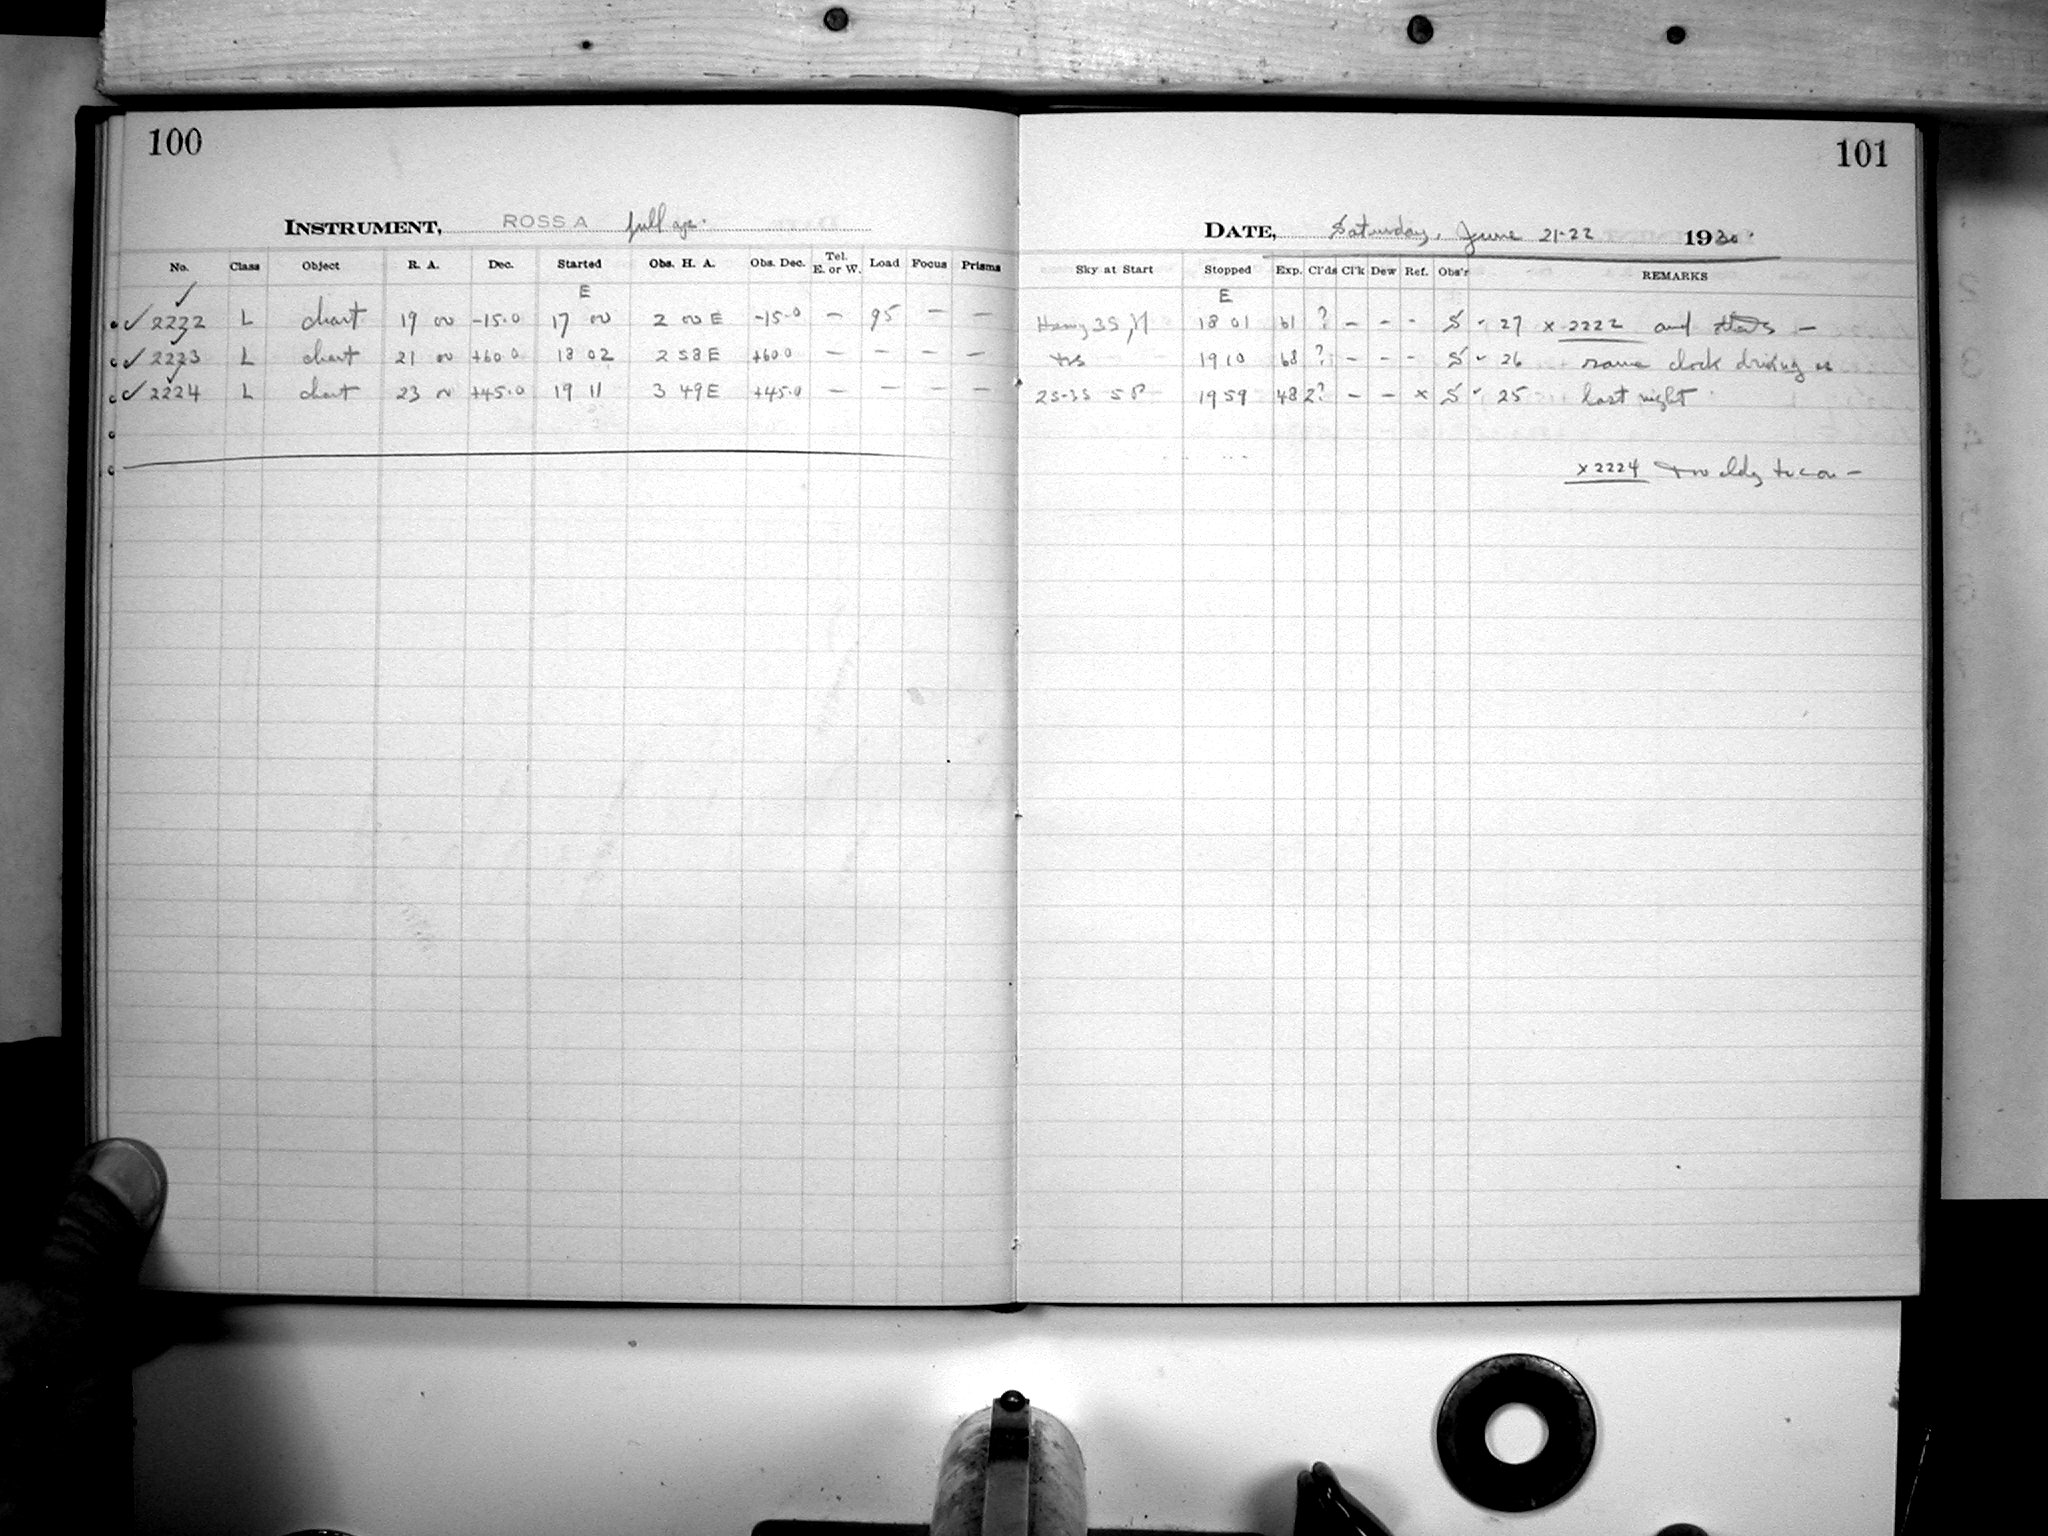 100
INSTRUMENT, ROSS A full ap.
No. Class Object R. A. Dec. Started Obs. H. A. Obs. Dec. Tel. E. or W. Load Focus Prisms
E
✓ 2222 L chart 19 00 -15.0 17 00 2 00 E -15.0 — 95 — —
✓ 2223 L chart 21 00 +60.0 18 02 2 58 E +60.0 — — — —
✓ 2224 L chart 23 00 +45.0 19 11 3 49 E +45.0 — — — —
101
DATE, Saturday, June 21-22 1930.
Sky at Start Stopped Exp. Cl'ds Cl'k Dew Ref. Obs'r REMARKS
E
Hazy 3S 18 01 61 ? — - - S - 27 x 2222 and —
19 10 68 ? — - - S - 26 same clock driving as
2S-3S 5P 19 59 48 2? — — x S - 25 last night
x 2224 too cldy to con —